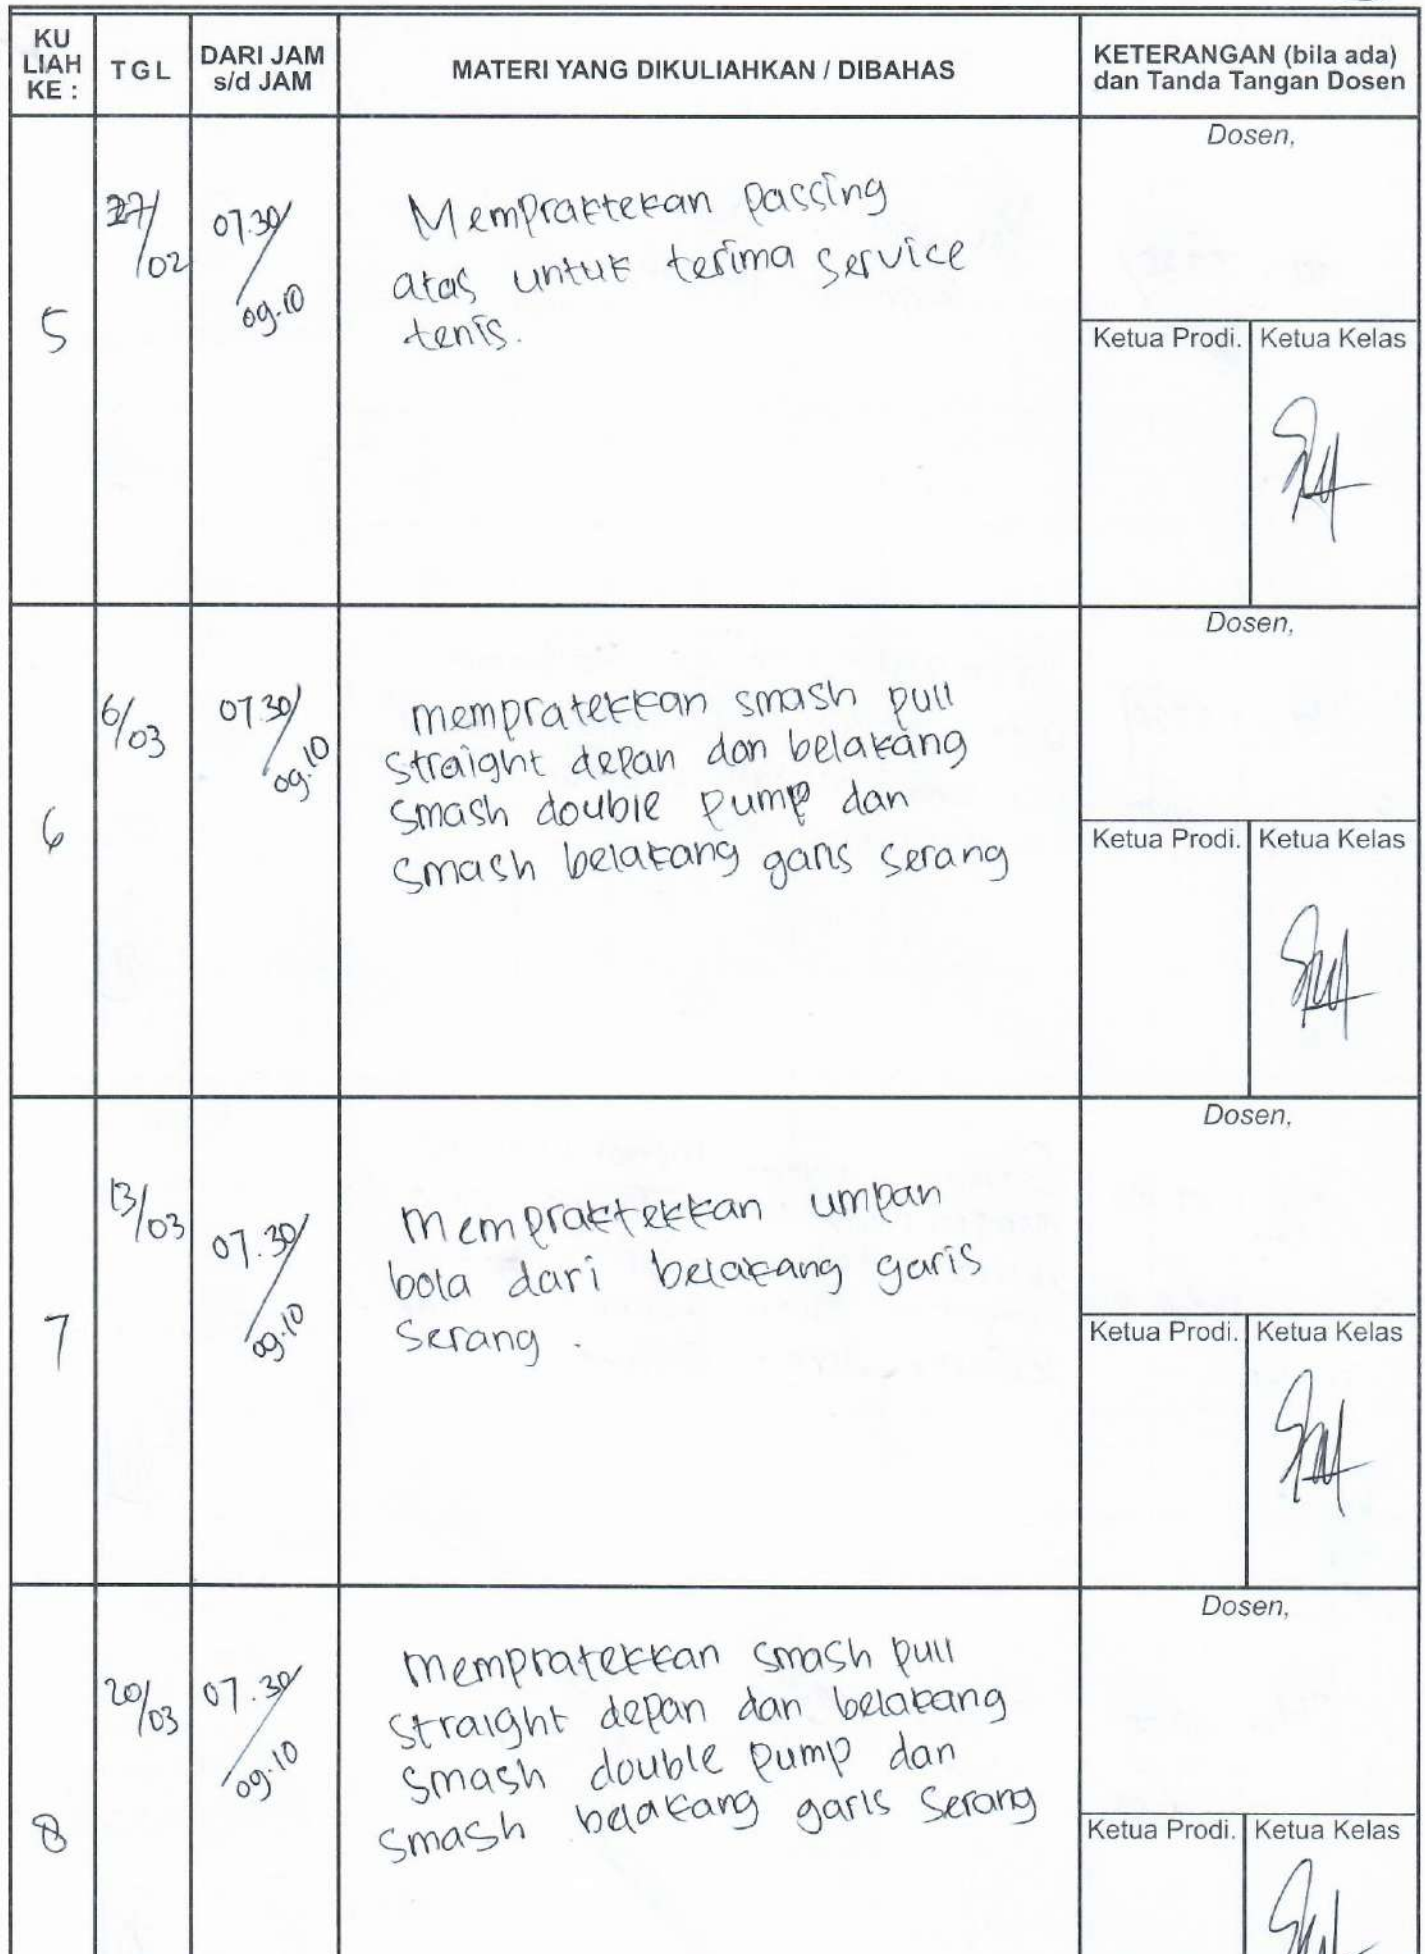 KU LIAH KE :
TGL
DARI JAM s/d JAM
MATERI YANG DIKULIAHKAN / DIBAHAS
KETERANGAN (bila ada) dan Tanda Tangan Dosen
5
27/02
07.30/09.10
Mempraktekan passing
atas untuk terima service
tenis.
Dosen,
Ketua Prodi.
Ketua Kelas
6
6/03
07.30/09.10
mempratekkan smash pull
straight depan dan belakang
smash double pump dan
smash belakang garis serang
Dosen,
Ketua Prodi.
Ketua Kelas
7
13/03
07.30/09.10
Mempraktekkan umpan
bola dari belakang garis
serang.
Dosen,
Ketua Prodi.
Ketua Kelas
8
20/03
07.30/09.10
mempratekkan smash pull
straight depan dan belakang
smash double pump dan
smash belakang garis serang
Dosen,
Ketua Prodi.
Ketua Kelas